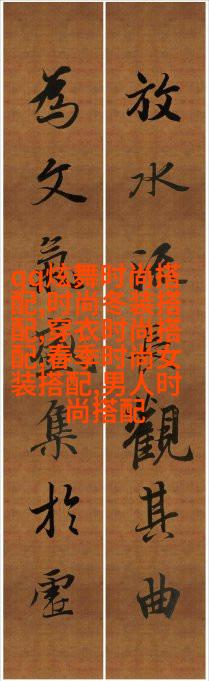 放水觀其曲
為文氣集於虛
qq炫舞时尚搭
配,时尚冬装搭
配,穿衣时尚搭
配,春季时尚女
装搭配,男人时
尚搭配